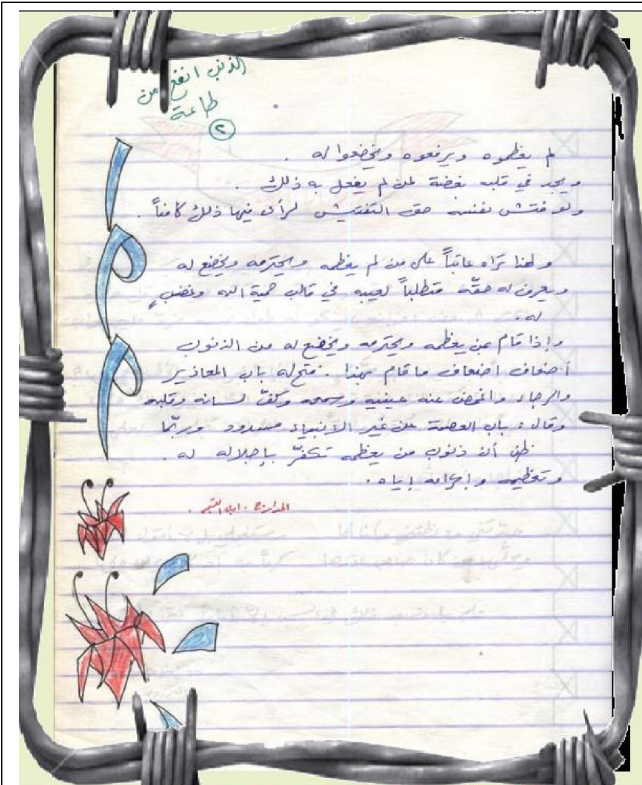 الذنب انفع من
طاعة
٢
لم يعظموه ويرفعوه ويخضعوا له .
ويجد في قلبه بغضة لمن لم يفعل به ذلك .
ولو فتش نفسه حق التفتيش لرأى فيها ذلك كامناً .
ولهذا تراه عاتباً على من لم يعظمه ويحترمه ويخضع له
ويعرف له حقّه متطلباً لعيبه في قالب حمية الله وغضبٍ
له .
وإذا قام بمن يعظمه ويحترمه ويخضع له من الذنوب
أضعاف أضعاف ما قام بهذا . فتح له باب المعاذير
والرجاء واغمض عنه عينيه وسمعه وكفّ لسانه وقلبه
وقال : باب العصمة عن غير الأنبياء مسدود وربّما
ظن أن ذنوب من يعظمه تكفّر بإجلاله له .
وتعظيمه وإكرامه إياه .
المدارج . ابن القيم .